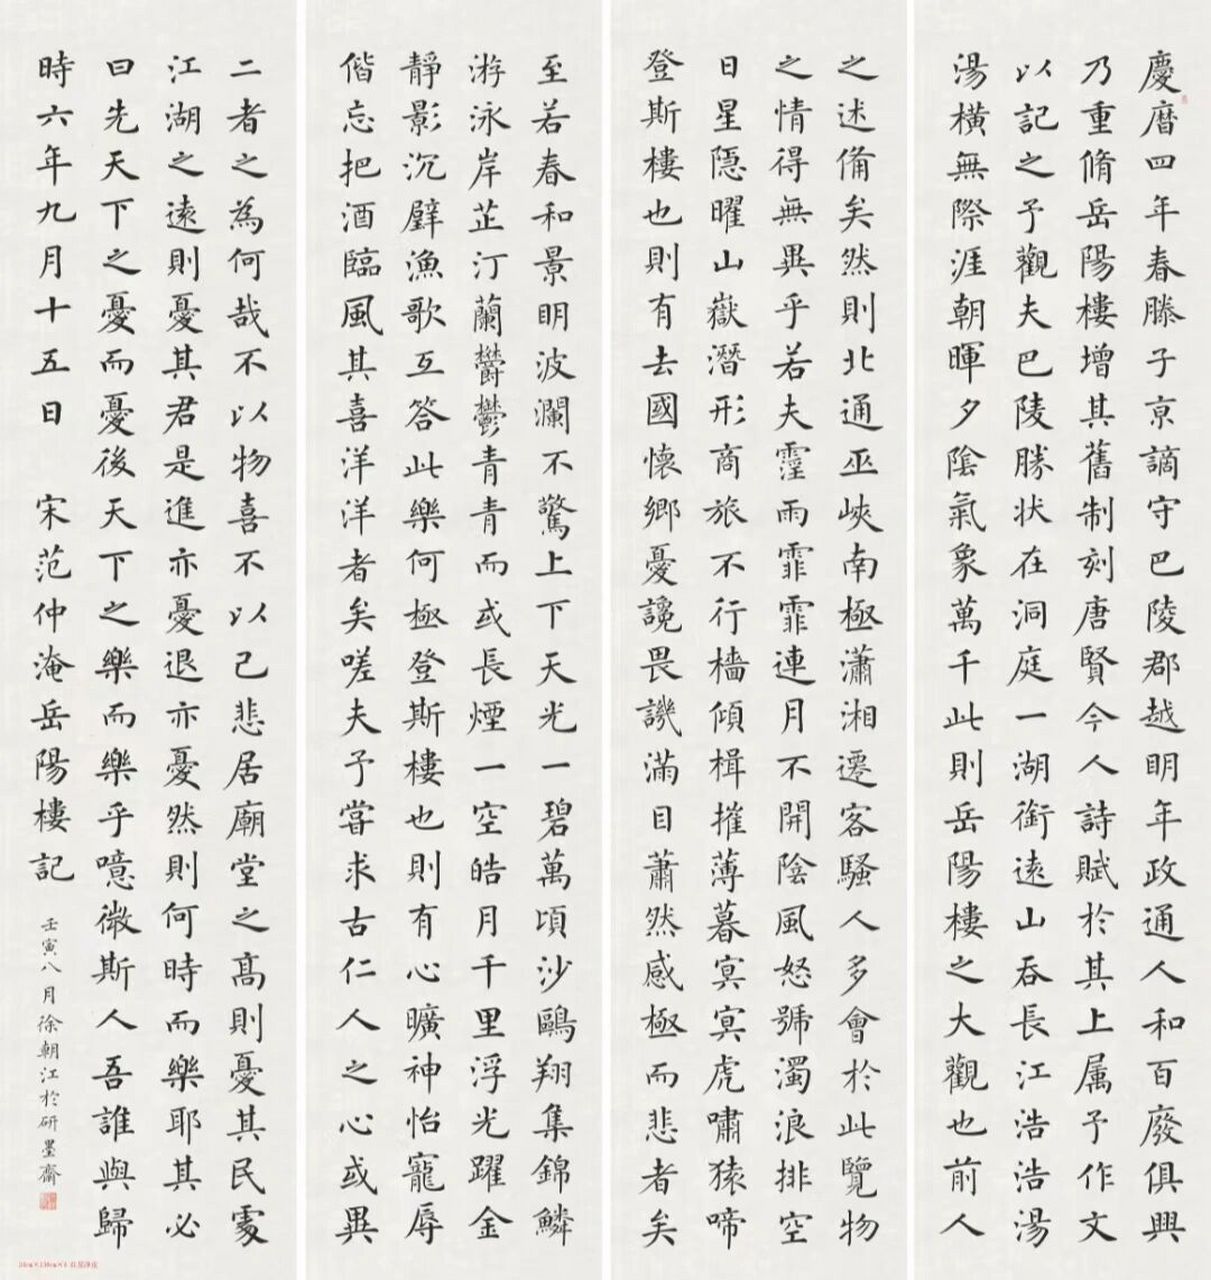 慶曆四年春滕子京謫守巴陵郡越明年政通人和百廢俱興
乃重脩岳陽樓增其舊制刻唐賢今人詩賦於其上属予作文
以記之予觀夫巴陵勝状在洞庭一湖銜遠山吞長江浩浩湯
湯橫無際涯朝暉夕陰氣象萬千此則岳陽樓之大觀也前人
之述備矣然則北通巫峽南極瀟湘遷客騷人多會於此覽物
之情得無異乎若夫霪雨霏霏連月不開陰風怒號濁浪排空
日星隱曜山嶽潛形商旅不行檣傾楫摧薄暮冥冥虎嘯猿啼
登斯樓也則有去國懷鄉憂讒畏譏滿目蕭然感極而悲者矣
至若春和景明波瀾不驚上下天光一碧萬頃沙鷗翔集錦鱗
游泳岸芷汀蘭欝欝青青而或長煙一空皓月千里浮光躍金
靜影沉璧漁歌互答此樂何極登斯樓也則有心曠神怡寵辱
偕忘把酒臨風其喜洋洋者矣嗟夫予嘗求古仁人之心或異
二者之為何哉不以物喜不以己悲居廟堂之高則憂其民處
江湖之遠則憂其君是進亦憂退亦憂然則何時而樂耶其必
曰先天下之憂而憂後天下之樂而樂乎噫微斯人吾誰與歸
時六年九月十五日 宋范仲淹岳陽樓記
壬寅八月徐朝江於研墨齋